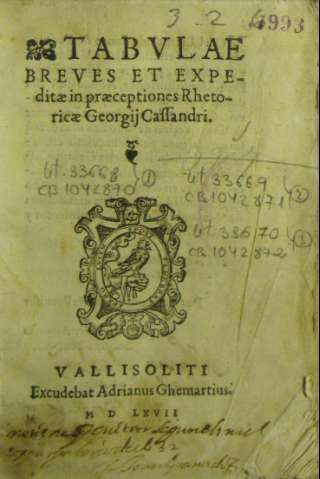 3 - 2 6993
TABVLAE
BREVES ET EXPE-
ditæ in præceptiones Rheto-
ricæ Georgij Cassandri.
bt. 33668
CB 1042870 ①
bt. 33669
CB. 1042871 ②
bt. 33670
CB. 1042872 ③
VALLISOLITI
Excudebat Adrianus Ghemartius.
M D LXVII